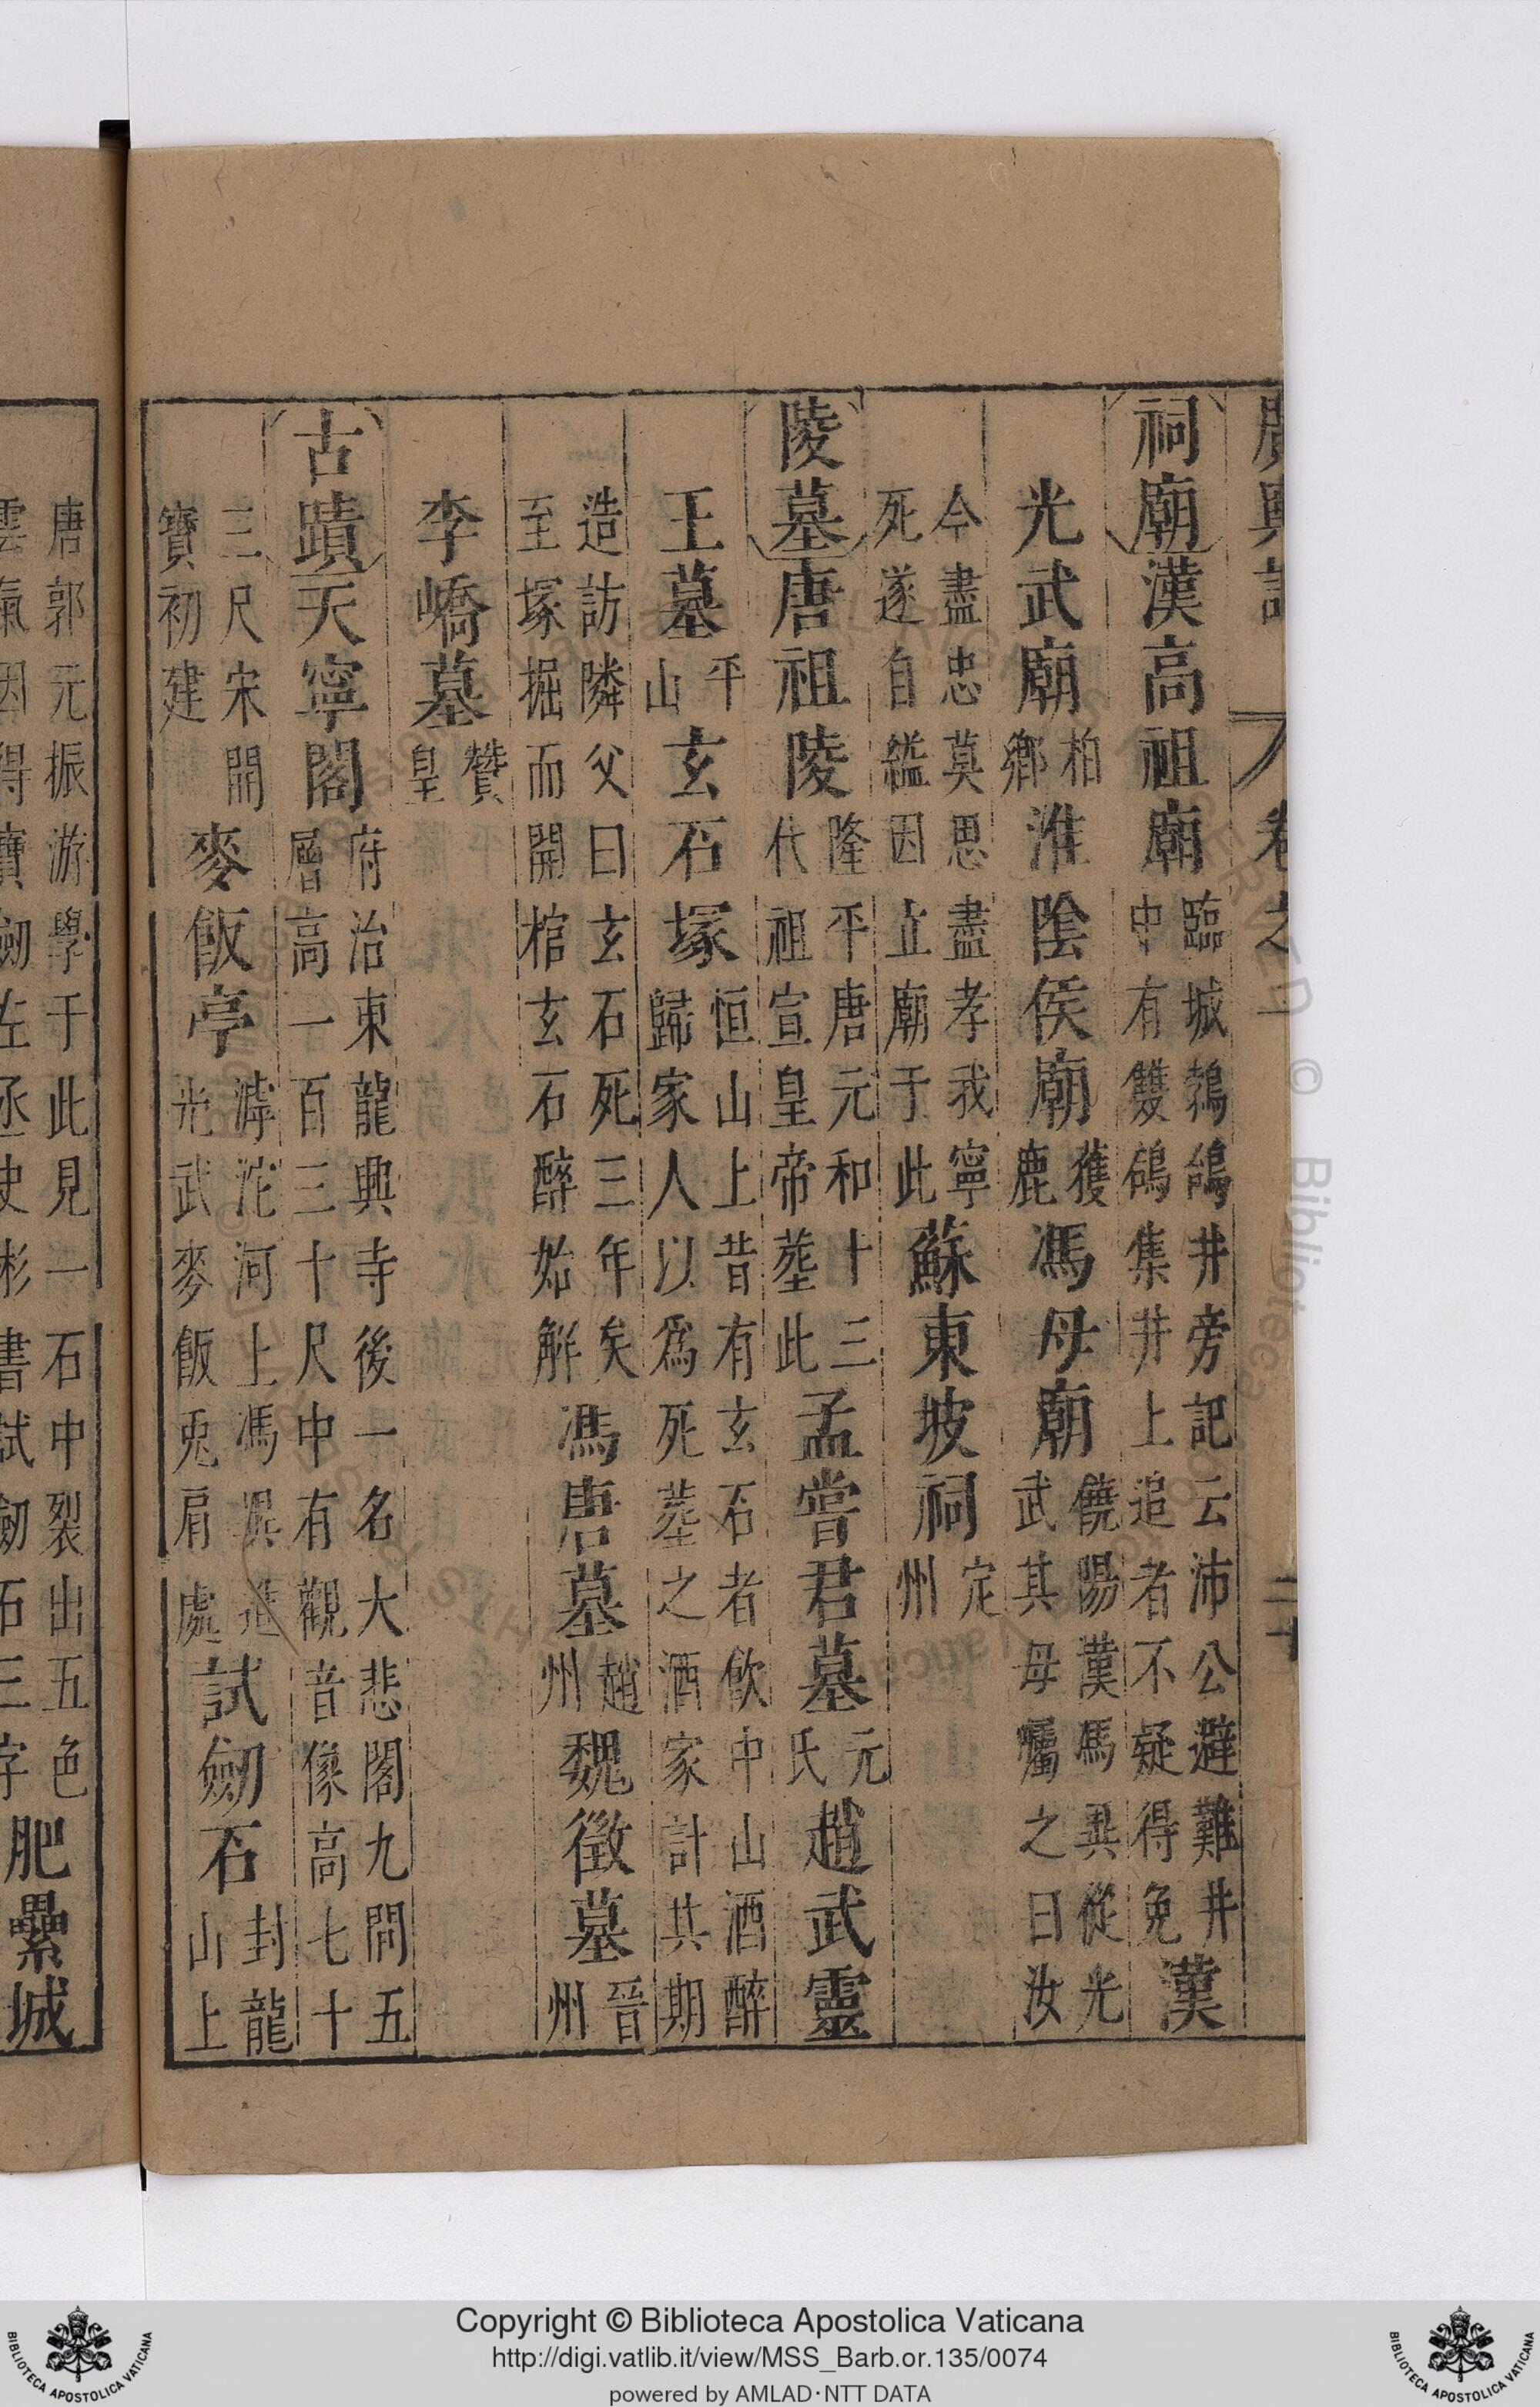 廣輿記 卷之 二十
祠廟漢高祖廟臨城鵓鴿井旁記云沛公避難井中有雙鴿集井上追者不疑得免漢
光武廟柏鄉淮陰侯廟獲鹿馮母廟饒陽漢馮異從光武其母囑之曰汝
今盡忠莫思盡孝我寧死遂自縊因立廟于此蘇東坡祠定州
陵墓唐祖陵隆平唐元和十三代祖宣皇帝葬此孟嘗君墓元氏趙武靈
王墓平山玄石塚恒山上昔有玄石者飲中山酒醉歸家人以為死葬之酒家計其期
造訪隣父曰玄石死三年矣至塚掘而開棺玄石醉始解馮唐墓趙州魏徵墓晉州
李嶠墓贊皇
古蹟天寧閣府治東龍興寺後一名大悲閣九間五層高一百三十尺中有觀音像高七十
三尺宋開寶初建麥飯亭滹沱河上馮異進光武麥飯兎肩處試劒石封龍山上
唐郭元振游學于此見一石中裂出五色雲氣因得寶劒左丞史彬書試劒石三字肥纍城
Copyright © Biblioteca Apostolica Vaticana
http://digi.vatlib.it/view/MSS_Barb.or.135/0074
powered by AMLAD·NTT DATA
BIBLIOTECA APOSTOLICA VATICANA
BIBLIOTECA APOSTOLICA VATICANA